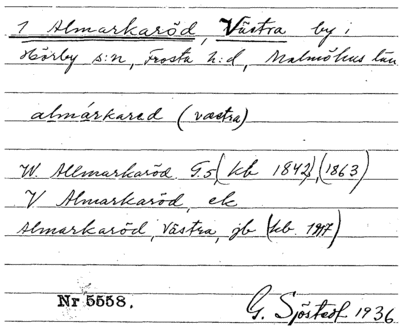 1 Almarkaröd, Västra by i
Hörby s:n, Frosta h:d, Malmöhus län
almárkared (vastra)
W. Allmarkaröd G.5 (kb 1842), (1863)
V Almarkaröd, ek
Almarkaröd, Västra, jb (kb. 1917)
Nr 5558. G. Sjöstedt 1936